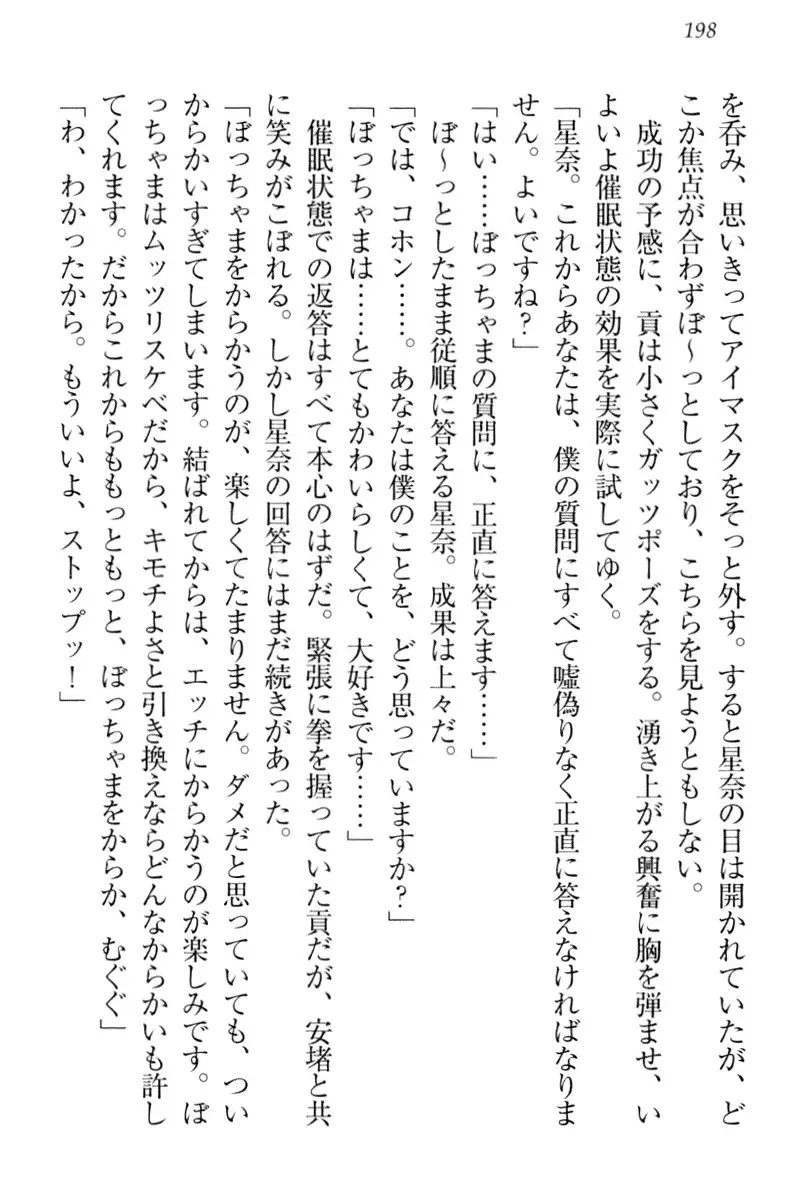 198
を呑み、思いきってアイマスクをそっと外す。すると星奈の目は開かれていたが、ど
こか焦点が合わずぼ～っとしており、こちらを見ようともしない。
成功の予感に、貢は小さくガッツポーズをする。湧き上がる興奮に胸を弾ませ、い
よいよ催眠状態の効果を実際に試してゆく。
「星奈。これからあなたは、僕の質問にすべて嘘偽りなく正直に答えなければなりま
せん。よいですね？」
「はい……ぼっちゃまの質問に、正直に答えます……」
ぼ～っとしたまま従順に答える星奈。成果は上々だ。
「では、コホン……。あなたは僕のことを、どう思っていますか？」
「ぼっちゃまは……とてもかわいらしくて、大好きです……」
催眠状態での返答はすべて本心のはずだ。緊張に拳を握っていた貢だが、安堵と共
に笑みがこぼれる。しかし星奈の回答にはまだ続きがあった。
「ぼっちゃまをからかうのが、楽しくてたまりません。ダメだと思っていても、つい
からかいすぎてしまいます。結ばれてからは、エッチにからかうのが楽しみです。ぼ
っちゃまはムッツリスケベだから、キモチよさと引き換えならどんなからかいも許し
てくれます。だからこれからももっともっと、ぼっちゃまをからか、むぐぐ」
「わ、わかったから。もういいよ、ストップッ！」